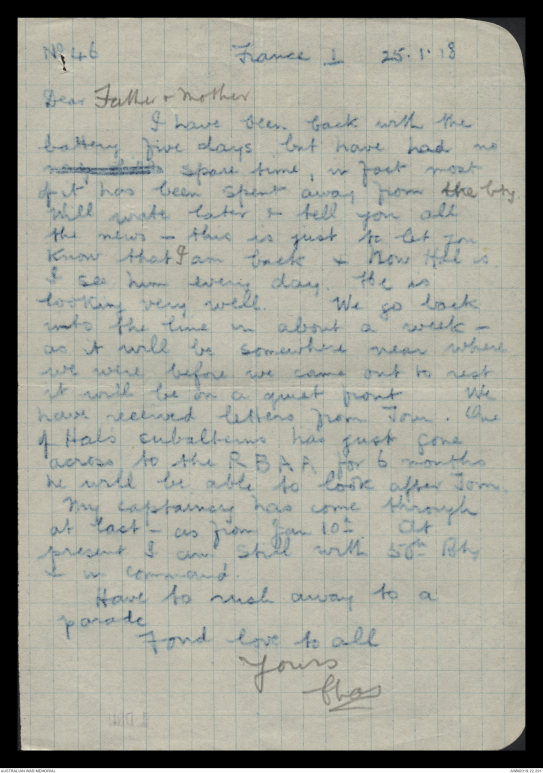 No 46 France 1 25.1.18
Dear Father & Mother
I have been back with the
battery five days but have had no
spare time, in fact most
of it has been spent away from the bty
Will write later & tell you all
the news – this is just to let you
know that I am back & How Hal is
I see him every day. He is
looking very well. We go back
into the line in about a week –
as it will be somewhere near where
we were before we came out to rest
it will be on a quiet front We
have received letters from Tom. One
of Hals subalterns has just gone
across to the R B A A for 6 months
he will be able to look after Tom.
My captaincy has come through
at last – as from Jan 10th. At
present I am still with 50th Bty
& in command
Have to rush away to a
parade
Fond love to all
Yours
Chas
AUSTRALIAN WAR MEMORIAL